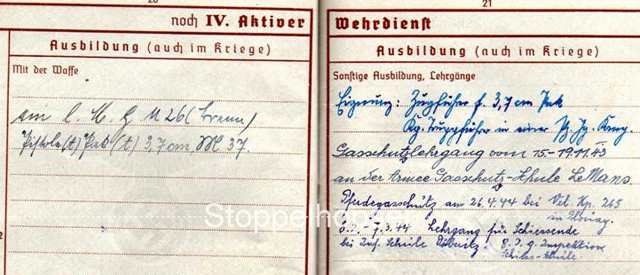 20
noch IV. Aktiver
Ausbildung (auch im Kriege)
Mit der Waffe
am l. M. G. M 26 (Brenn)
Pistole (t) Pak (t) 3,7 cm, M 37.
21
Wehrdienst
Ausbildung (auch im Kriege)
Sonstige Ausbildung, Lehrgänge
Eignung: Zugführer f. 3,7 cm Pak
in einer Pz. Jg. Komp.
Gasschutzlehrgang vom 15.-19.11.43
an der Armee Gasschutz-Schule Le Mans.
Pferdegasschutz am 26.4.44 bei Vet. Kp. 265
in
7.3.44 Lehrgang für Schiessende
bei Inf. Schule
Schiess-Schule.
Stoppelhopser